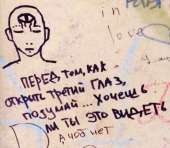 in
love
ПЕРЕД ТОМ, КАК
ОТКРЫТЬ ТРЕТИЙ ГЛАЗ,
ПОДУМАЙ... ХОЧЕШЬ
ЛИ ТЫ ЭТО ВИДЕТЬ
А ЧОБ НЕТ